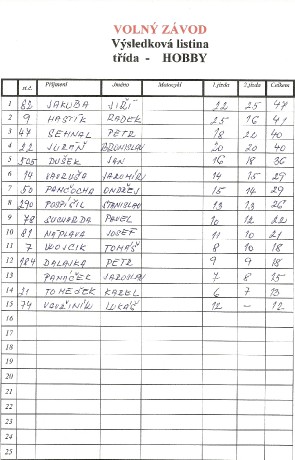 VOLNÝ ZÁVOD
Výsledková listina
třída - HOBBY
st.č. Příjmení Jméno Motocykl 1.jízda 2.jízda Celkem
1 82 JAKUBA JIŘÍ 22 25 47
2 9 HASTÍK RADEK 25 16 41
3 47 SEHNAL PETR 18 22 40
4 22 JURÁŇ BRONISLAV 20 20 40
5 505 DUŠEK JAN 16 18 36
6 14 VAVRUŠA JAROMÍR 14 15 29
7 50 PANČOCHA ONDŘEJ 15 14 29
8 290 POSPÍŠIL STANISLAV 13 13 26
9 78 SUCHARDA PAVEL 10 12 22
10 81 NÁPLAVA JOSEF 11 10 21
11 7 VOJCIK TOMÁŠ 8 10 18
12 184 DALAJKA PETR 9 9 18
13 PANÁČEK JAROSLAV 7 8 15
14 21 TOMEČEK KAREL 6 7 13
15 74 LUKÁŠ 12 - 12
16
17
18
19
20
21
22
23
24
25